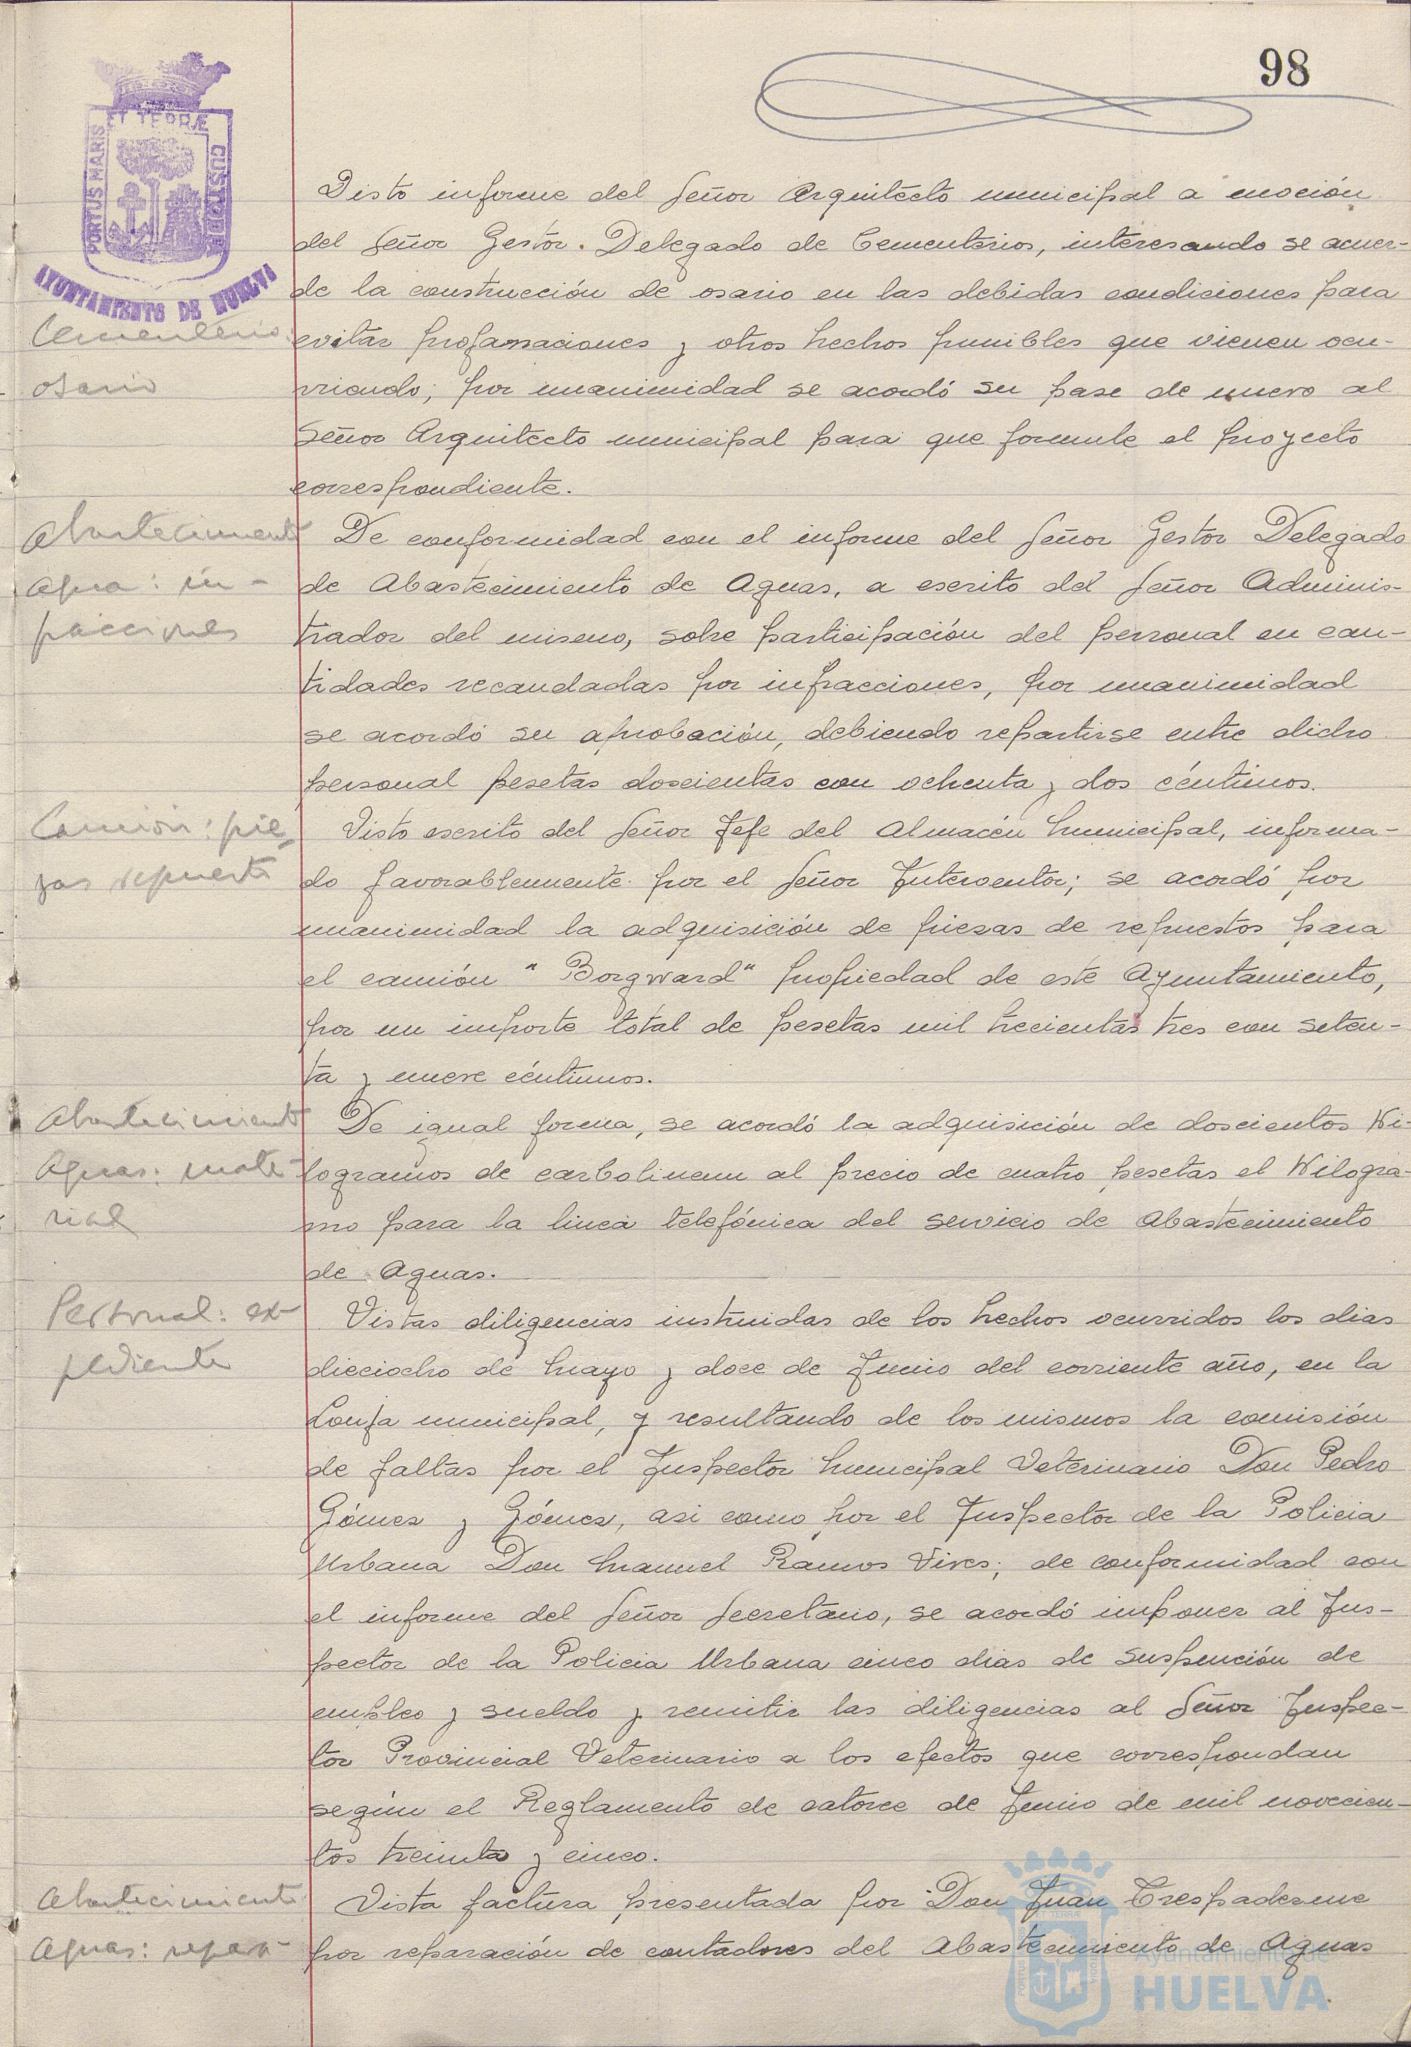 98
PORTUS MARIS ET TERRÆ CUSTODIA
AYUNTAMIENTO DE HUELVA
Visto informe del Señor Arquitecto municipal a moción
del Señor Gestor. Delegado de Cementerios, interesando se acuer-
de la construcción de osario en las debidas condiciones para
Cementerio:
evitar profanaciones y otros hechos punibles que vienen ocu-
osario
rriendo; por unanimidad se acordó su pase de nuevo al
Señor Arquitecto municipal para que formule el proyecto
correspondiente.
Abastecimiento
De conformidad con el informe del Señor Gestor Delegado
agua: in-
de Abastecimiento de Aguas, a escrito del Señor Adminis-
fracciones
trador del mismo, sobre participación del personal en can-
tidades recaudadas por infracciones, por unanimidad
se acordó su aprobación, debiendo repartirse entre dicho
personal pesetas doscientas con ochenta y dos céntimos.
Camión: pie-
Visto escrito del Señor Jefe del Almacén Municipal, informa-
zas repuesto
do favorablemente por el Señor Interventor; se acordó por
unanimidad la adquisición de piezas de repuestos para
el camión "Borgward" propiedad de este Ayuntamiento,
por un importe total de pesetas mil trecientas tres con seten-
ta y nueve céntimos.
Abastecimiento
De igual forma, se acordó la adquisición de doscientos Ki-
Aguas: mate-
logramos de carbolineun al precio de cuatro pesetas el Kilogra-
rial
mo para la linea telefónica del servicio de Abastecimiento
de Aguas.
Personal: ex-
Vistas diligencias instruidas de los hechos ocurridos los dias
pediente
dieciocho de Mayo y doce de Junio del corriente año, en la
Lonja municipal, y resultando de los mismos la comisión
de faltas por el Inspector Municipal Veterinario Don Pedro
Gómez y Gómez, asi como por el Inspector de la Policia
Urbana Don Manuel Ramos Vires; de conformidad con
el informe del Señor Secretario, se acordó imponer al Ins-
pector de la Policia Urbana cinco dias de suspención de
empleo y sueldo y remitir las diligencias al Señor Inspec-
tor Provincial Veterinario a los efectos que correspondan
según el Reglamento de catorce de Junio de mil novecien-
tos treinta y cinco.
Abastecimiento
Vista factura presentada por Don Juan Trespaderne
Aguas: repara-
por reparación de contadores del Abastecimiento de Aguas
Ayuntamiento de
HUELVA